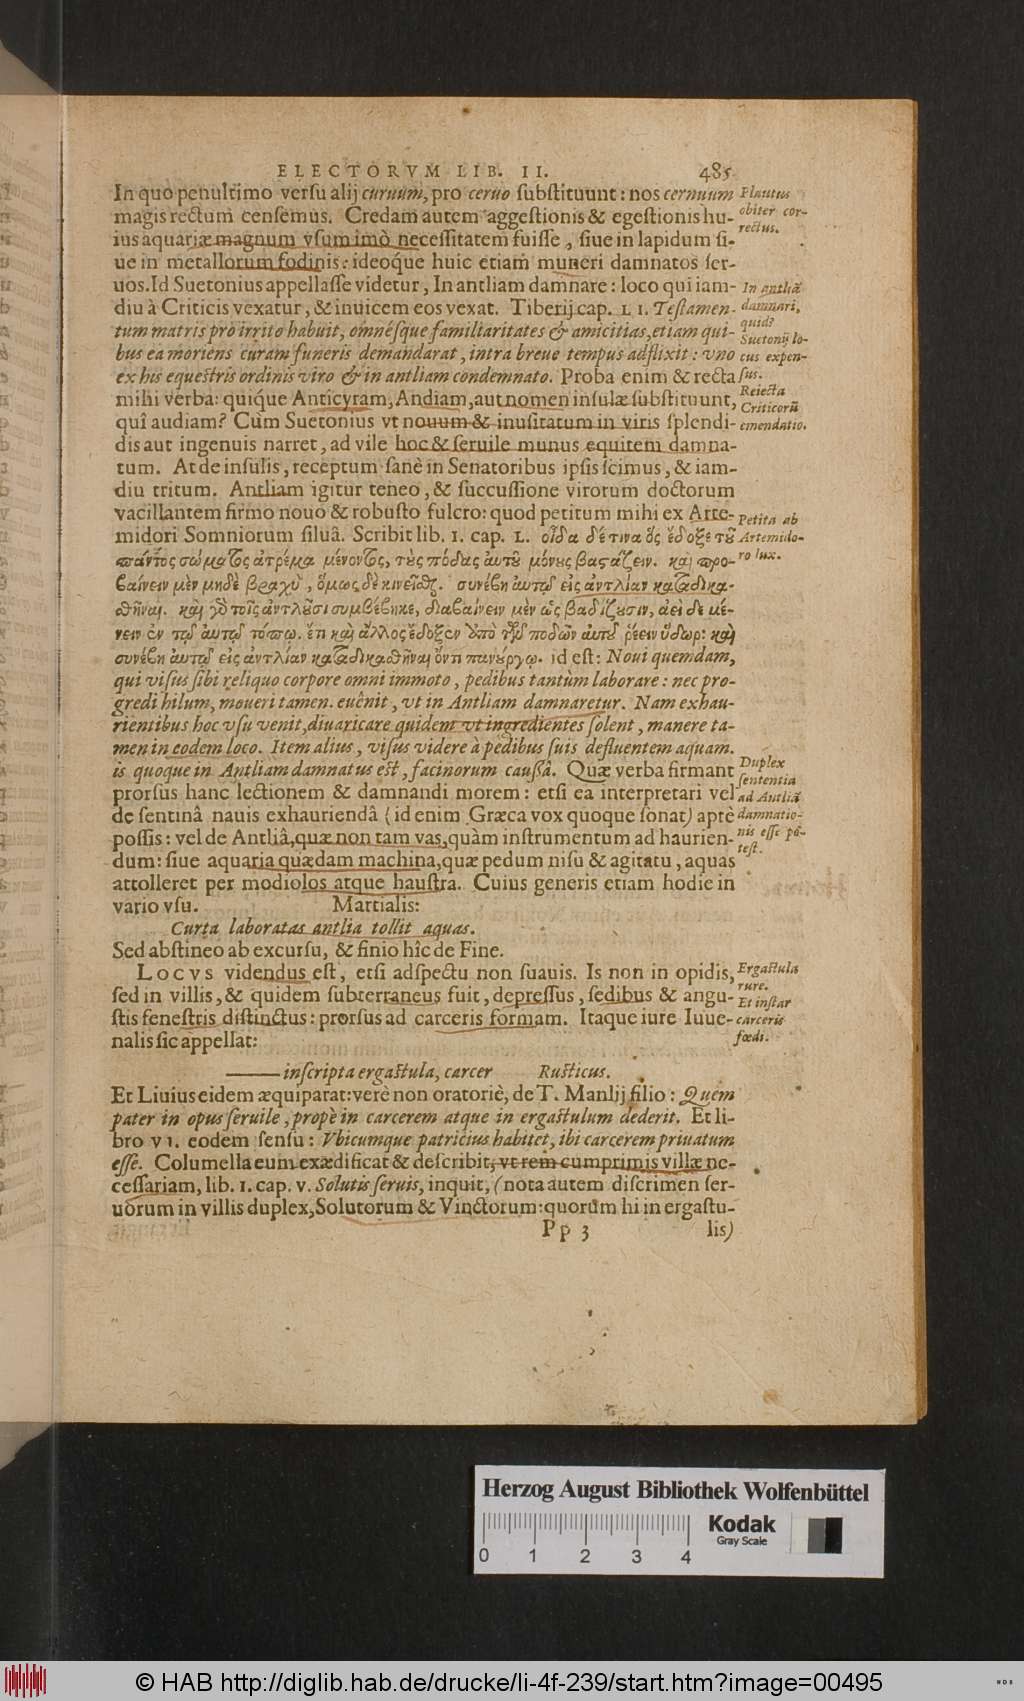 ELECTORVM LIB. II. 485
In quo penultimo versu alij curuum, pro ceruo substituunt: nos cernuum
magis rectum censemus. Credam autem aggestionis & egestionis hu-
ius aquariæ magnum vsum imò necessitatem fuisse, siue in lapidum si-
ue in metallorum fodinis: ideoq́ue huic etiam muneri damnatos ser-
uos. Id Suetonius appellasse videtur, In antliam damnare: loco qui iam-
diu à Criticis vexatur, & inuicem eos vexat. Tiberij cap. LI. Testamen-
tum matris pro irrito habuit, omnésque familiaritates & amicitias, etiam qui-
bus ea moriens curam funeris demandarat, intra breue tempus adflixit: vno
ex his equestris ordinis viro & in antliam condemnato. Proba enim & recta
mihi verba: quíque Anticyram, Andiam, aut nomen insulæ substituunt,
quî audiam? Cùm Suetonius vt nouum & inusitatum in viris splendi-
dis aut ingenuis narret, ad vile hoc & seruile munus equitem damna-
tum. At de insulis, receptum sanè in Senatoribus ipsis scimus, & iam-
diu tritum. Antliam igitur teneo, & succussione virorum doctorum
vacillantem firmo nouo & robusto fulcro: quod petitum mihi ex Arte-
midori Somniorum siluâ. Scribit lib. I. cap. L. οἶδα δέ τινα ὃς ἔδοξε τοῦ
παντὸς σώματος ἀτρέμα μένοντος, τοὺς πόδας αὐτοῦ μόνους βαστάζειν. καὶ προ-
βαίνειν μὲν μηδὲ βραχὺ, ὅμως δὲ κινεῖσθαι. συνέβη αὐτῷ εἰς ἀντλίαν καταδικα-
σθῆναι. καὶ γὰρ τοῖς ἀντλοῦσι συμβέβηκε, διαβαίνειν μὲν ὡς βαδίζουσιν, ἀεὶ δὲ μέ-
νειν ἐν τῷ αὐτῷ τόπῳ. ἔτι καὶ ἄλλος ἔδοξεν ὑπὸ τῶν ποδῶν αὐτοῦ ῥέειν ὕδωρ: καὶ
συνέβη αὐτῷ εἰς ἀντλίαν καταδικασθῆναι ὄντι πανούργῳ. id est: Noui quemdam,
qui visus sibi reliquo corpore omni immoto, pedibus tantùm laborare: nec pro-
gredi hilum, moueri tamen. euênit, vt in Antliam damnaretur. Nam exhau-
rientibus hoc vsu venit, diuaricare quidem vt ingredientes solent, manere ta-
men in eodem loco. Item alius, visus videre à pedibus suis defluentem aquam.
is quoque in Antliam damnatus est, facinorum caussâ. Quæ verba firmant
prorsus hanc lectionem & damnandi morem: etsi ea interpretari vel
de sentinâ nauis exhauriendâ (id enim Græca vox quoque sonat) aptè
possis: vel de Antliâ, quæ non tam vas, quàm instrumentum ad haurien-
dum: siue aquaria quædam machina, quæ pedum nisu & agitatu, aquas
attolleret per modiolos atque haustra. Cuius generis etiam hodie in
vario vsu. Martialis:
Curta laboratas antlia tollit aquas.
Sed abstineo ab excursu, & finio hîc de Fine.
LOCVS videndus est, etsi adspectu non suauis. Is non in opidis,
sed in villis, & quidem subterraneus fuit, depressus, sedibus & angu-
stis fenestris distinctus: prorsus ad carceris formam. Itaque iure Iuue-
nalis sic appellat:
—— inscripta ergastula, carcer Rusticus.
Et Liuius eidem æquiparat: verè non oratoriè, de T. Manlij filio: Quem
pater in opus seruile, propè in carcerem atque in ergastulum dederit. Et li-
bro VI. eodem sensu: Vbicumque patricius habitet, ibi carcerem priuatum
esse. Columella eum exædificat & describit, vt rem cumprimis villæ ne-
cessariam, lib. I. cap. V. Solutis seruis, inquit, (nota autem discrimen ser-
uorum in villis duplex, Solutorum & Vinctorum: quorum hi in ergastu-
Pp 3 lis)
Plautus
obiter cor-
rectus.
In antliā
damnari,
quid?
Suetonij lo-
cus expen-
sus.
Reiecta
Criticorū
emendatio.
Petita ab
Artemido-
ro lux.
Duplex
sententia
ad Antliā
damnatio-
nis esse po-
test.
Ergastula
rure.
Et instar
carceris
fœdi.
Herzog August Bibliothek Wolfenbüttel
0 1 2 3 4
Kodak
Gray Scale
© HAB http://diglib.hab.de/drucke/li-4f-239/start.htm?image=00495